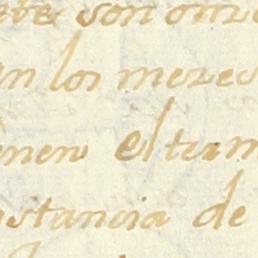 son onze
an los mezes
nen el term
nstancia de